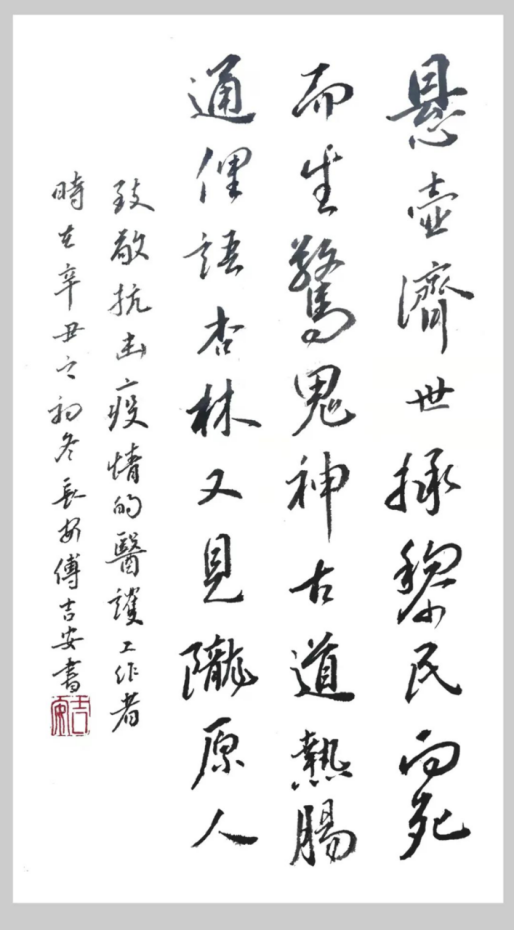 悬壺濟世拯黎民向死
而生驚鬼神古道熱腸
通俚語杏林又見隴原人
致敬抗击疫情的醫護工作者
時在辛丑之初冬長安傅吉安書
吉安